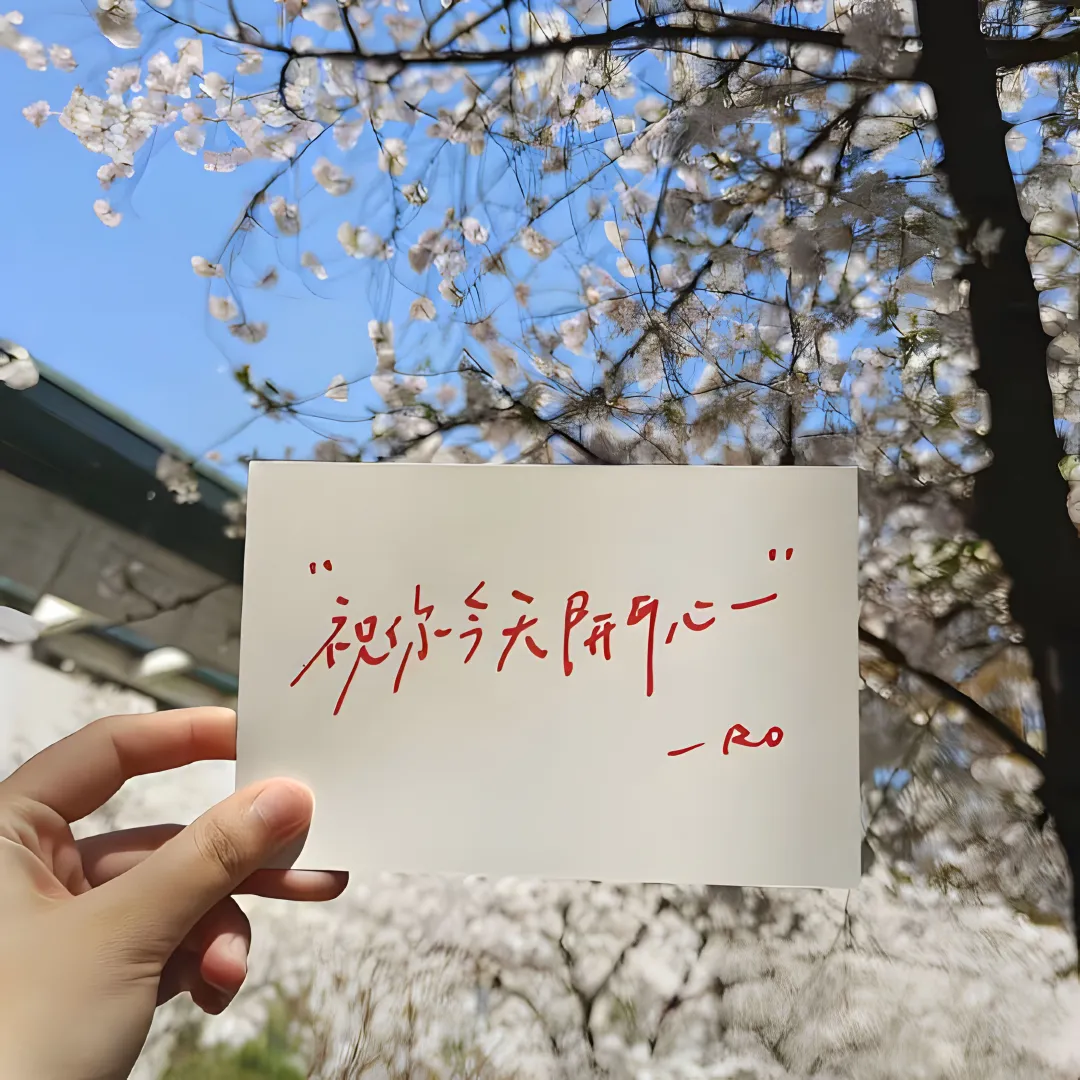 "祝你今天開心一"
— RO